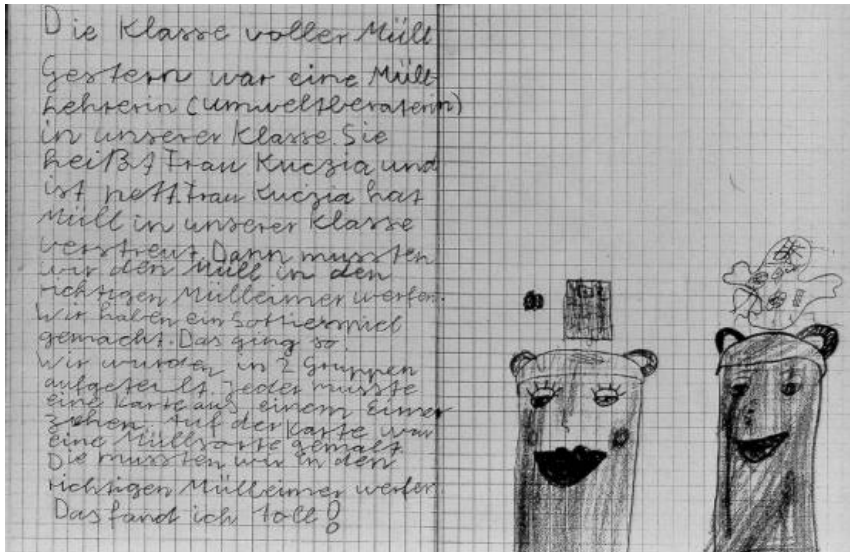 Die Klasse voller Müll
Gestern war eine Müll-
Lehrerin (umweltberaterin)
in unserer Klasse. Sie
heißt Frau Kuczia und
ist nett. Frau Kuczia hat
Müll in unserer Klasse
verstreut. Dann mussten
wir den Müll in den
richtigen Mülleimer werfen.
Wir haben ein Sortierspiel
gemacht. Das ging so.
Wir wurden in 2 Gruppen
aufgeteilt. jeder musste
eine Karte aus einem Eimer
ziehen. Auf der Karte war
eine Müllsorte gemalt.
Die mussten wir in den
richtigen Mülleimer werfen.
Das fand ich toll!